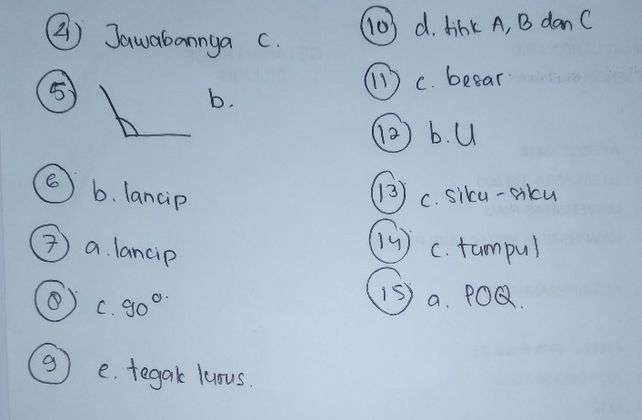 4) Jawabannya c.
5) b.
6 b. lancip
7 a. lancip
8 c. 90°.
9 e. tegak lurus.
10 d. titik A, B dan C
11 c. besar
12 b. U
13 c. siku-siku
14 c. tumpul
15 a. POQ.